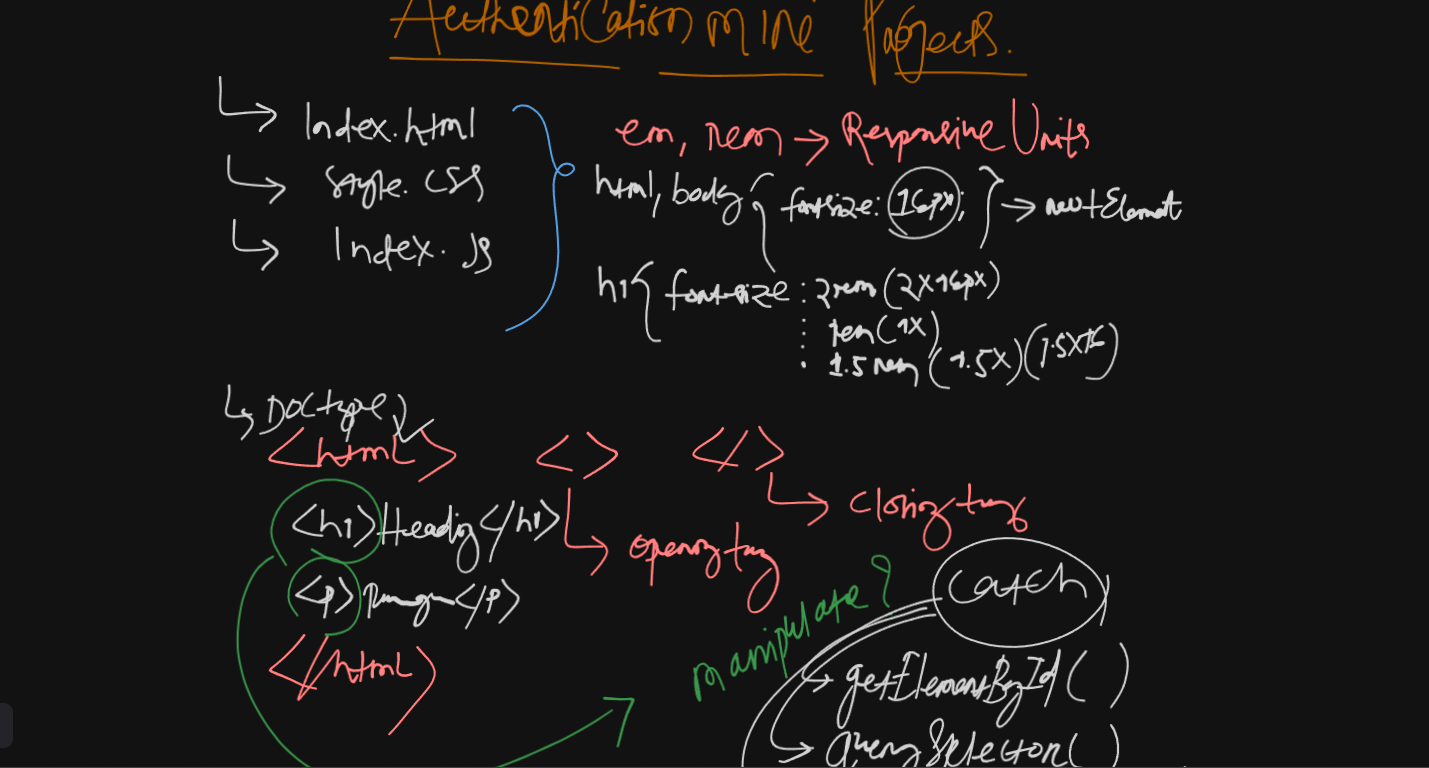 Authentication mini Projects.
↳ Index.html
↳ Style.css
↳ Index.js
em, rem → Responsive Units
html, body { fontsize: 16px; } → root Element
h1 { font-size : 2rem (2x16px)
: 1em (1x)
: 1.5rem (1.5x) (1.5x16)
↳ DOCtype ✓
<html>
<h1>Heading</h1>
<p></p>
</html>
<>
→ opening tag
</>
→ Closing tag
manipulate?
Catch
→ getElementById( )
→ querySelector( )